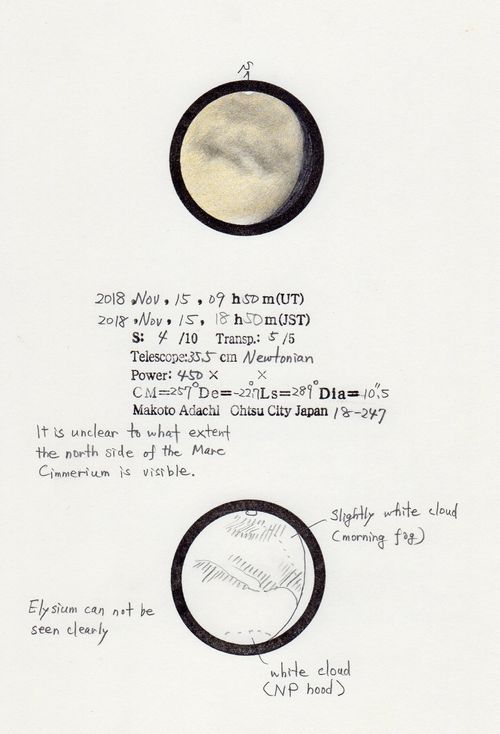 S
2018 Nov, 15, 09 h 50 m (UT)
2018 Nov, 15, 18 h 50 m (JST)
S: 4 /10 Transp.: 5 /5
Telescope: 35.5 cm Newtonian
Power: 450 × ×
CM=257° De=-22.7 Ls=289° Dia=10".5
Makoto Adachi Ohtsu City Japan 18-247
It is unclear to what extent
the north side of the Mare
Cimmerium is visible.
slightly white cloud
(morning fog)
Elysium can not be
seen clearly
white cloud
(NP hood)